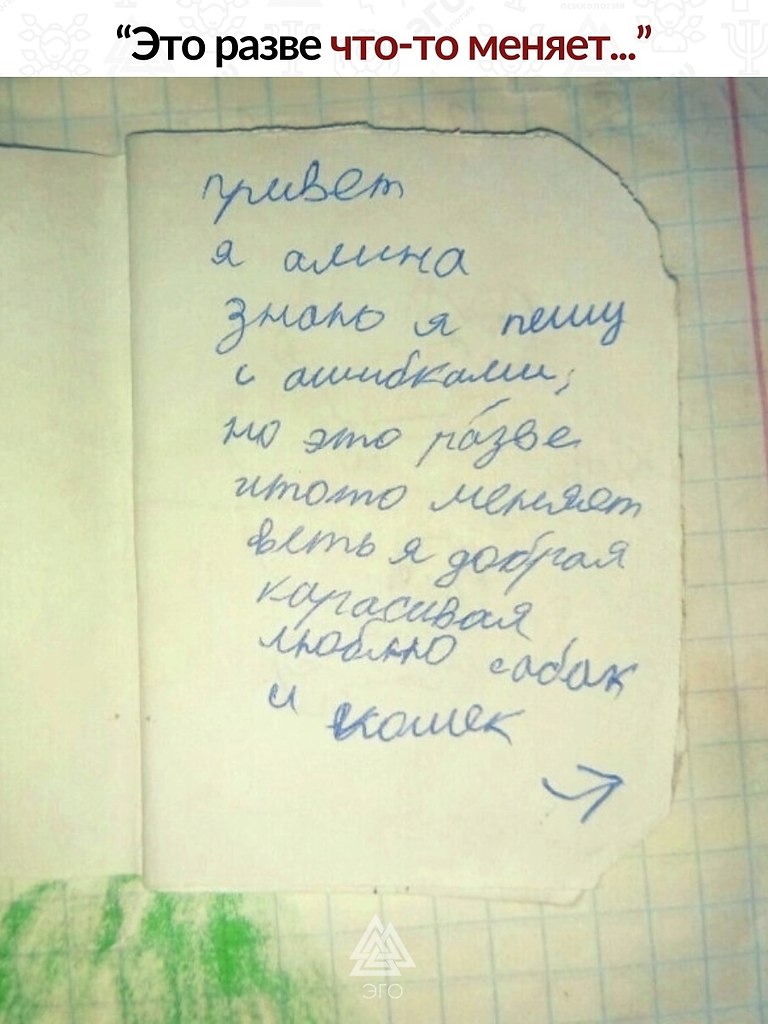 “Это разве что-то меняет...”
привет
я алина
знаю я пешу
с ашибками,
но это разве
штото меняет
веть я добрая
карасивая
люблю собак
и кошек
→
ЭГО